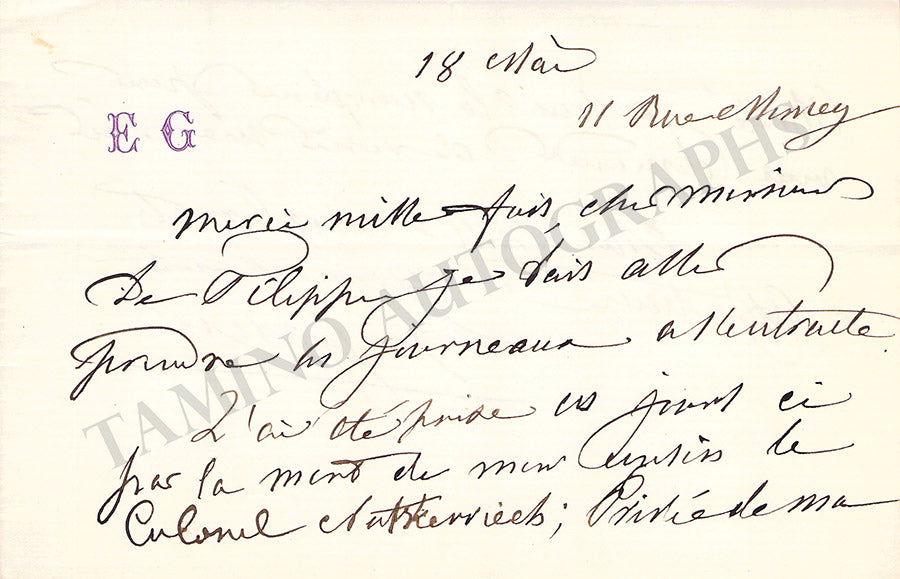 18 Mai
11 Rue Mincy
E G
Merci mille fois, cher Monsieur
De Filippi je vais aller
prendre les journeaux
J'ai été prise ces jours ci
par la mort de mon cousin le
Colonel ; Priée de ma
TAMINO AUTOGRAPHS